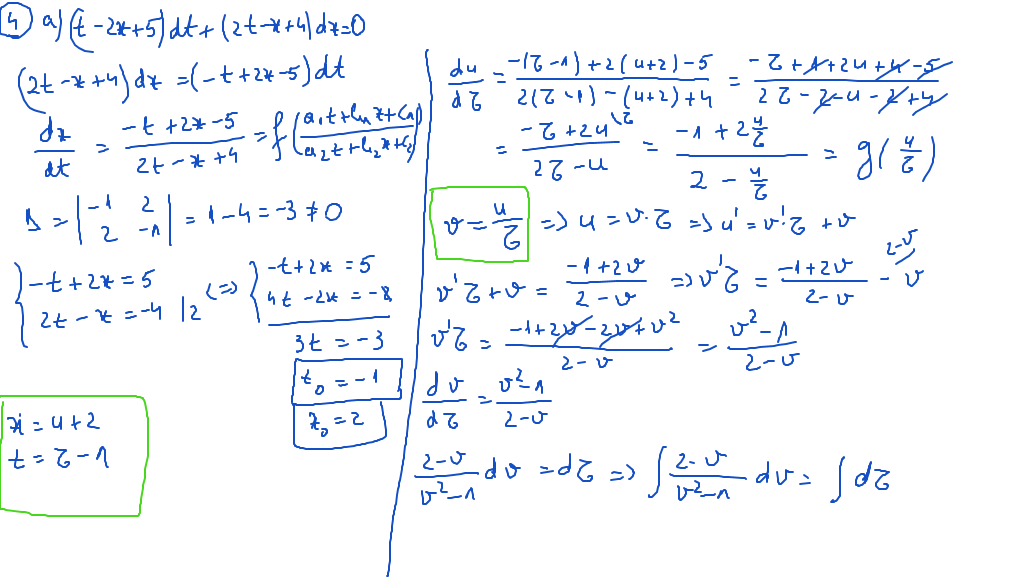 4 a) (t-2x+5)dt+(2t-x+4)dx=0
(2t-x+4)dx=(-t+2x-5)dt
dx/dt = (-t+2x-5)/(2t-x+4) = f((a₁t+b₁x+c₁)/(a₂t+b₂x+c₂))
Δ = |-1 2; 2 -1| = 1-4=-3≠0
{-t+2x=5; 2t-x=-4 |2 <=> {-t+2x=5; 4t-2x=-8
3t=-3
t₀=-1
x₀=2
x=u+2
t=τ-1
du/dτ = (-(τ-1)+2(u+2)-5)/(2(τ-1)-(u+2)+4) = (-τ+1+2u+4-5)/(2τ-2-u-2+4)
= (-τ+2u)/(2τ-u) |τ = (-1+2u/τ)/(2-u/τ) = g(u/τ)
v=u/τ => u=v·τ => u'=v'τ+v
v'τ+v = (-1+2v)/(2-v) => v'τ = (-1+2v)/(2-v) - v 2-v
v'τ = (-1+2v-2v+v²)/(2-v) = (v²-1)/(2-v)
dv/dτ = (v²-1)/(2-v)
(2-v)/(v²-1) dv = dτ => ∫(2-v)/(v²-1) dv = ∫dτ